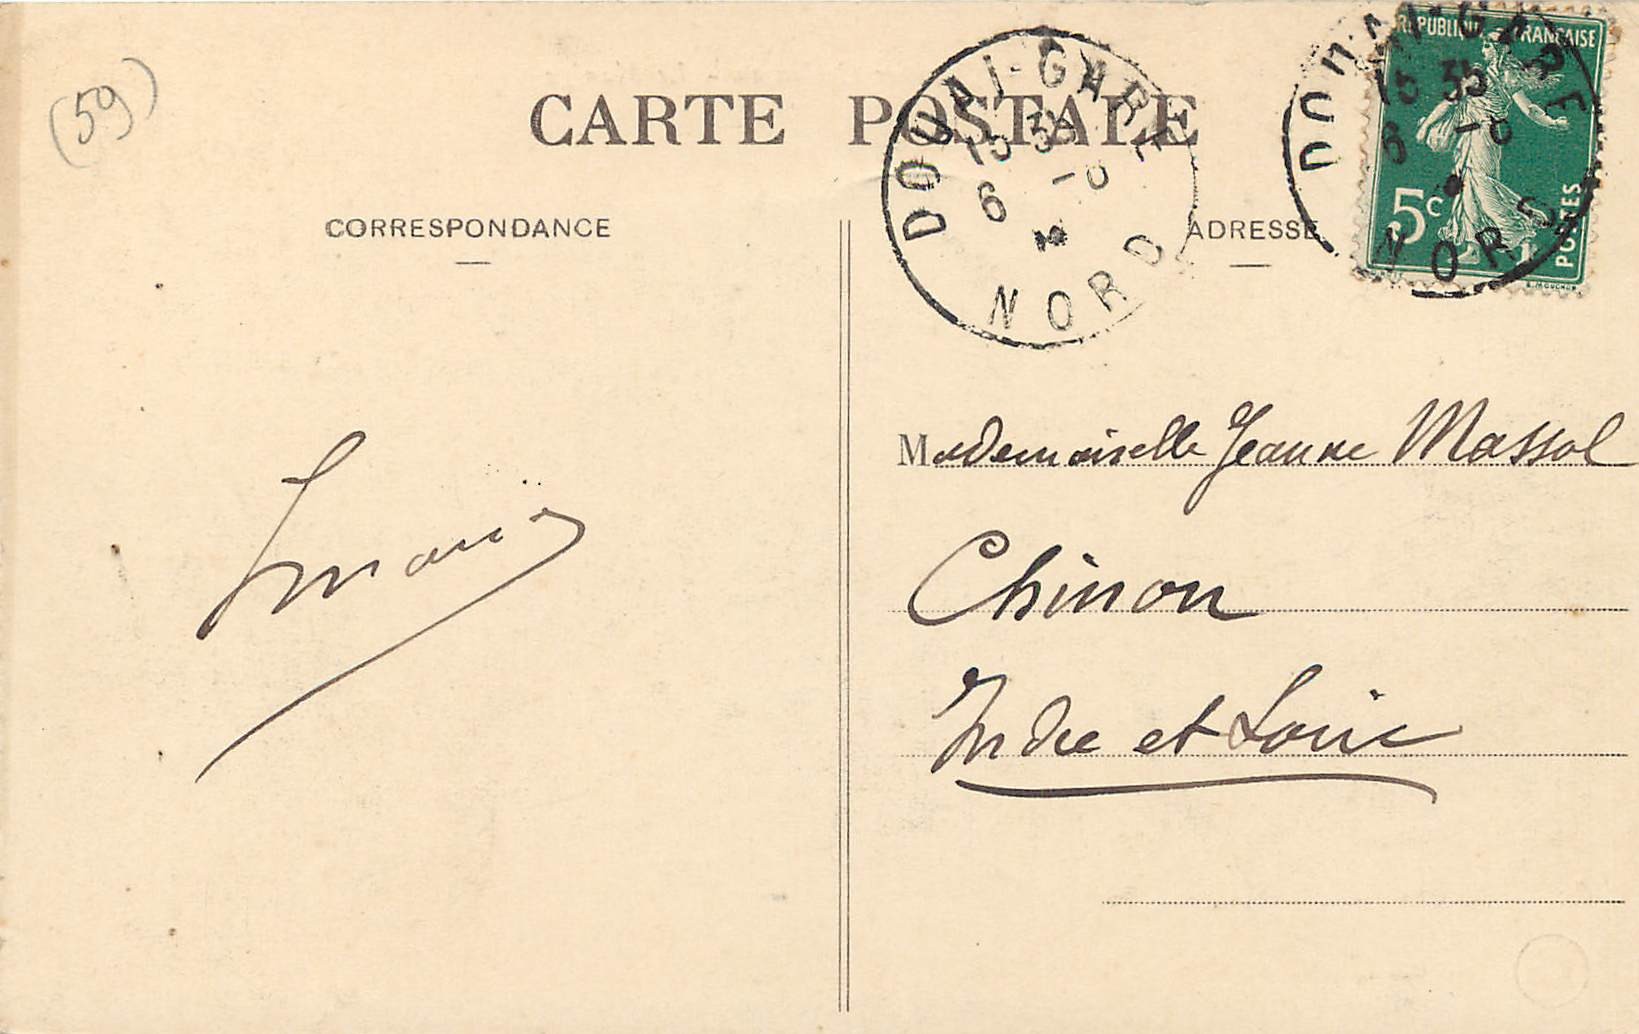 (59)
CARTE POSTALE
CORRESPONDANCE
ADRESSE
DOUAI-GARE
15 35
6 -8
NORD
DOUAI-GARE
15 35
6 -8
NORD
REPUBLIQUE FRANÇAISE
5c
POSTES
L. MOUCHON
Mademoiselle Jeanne Massol
Chinon
Indre et Loire